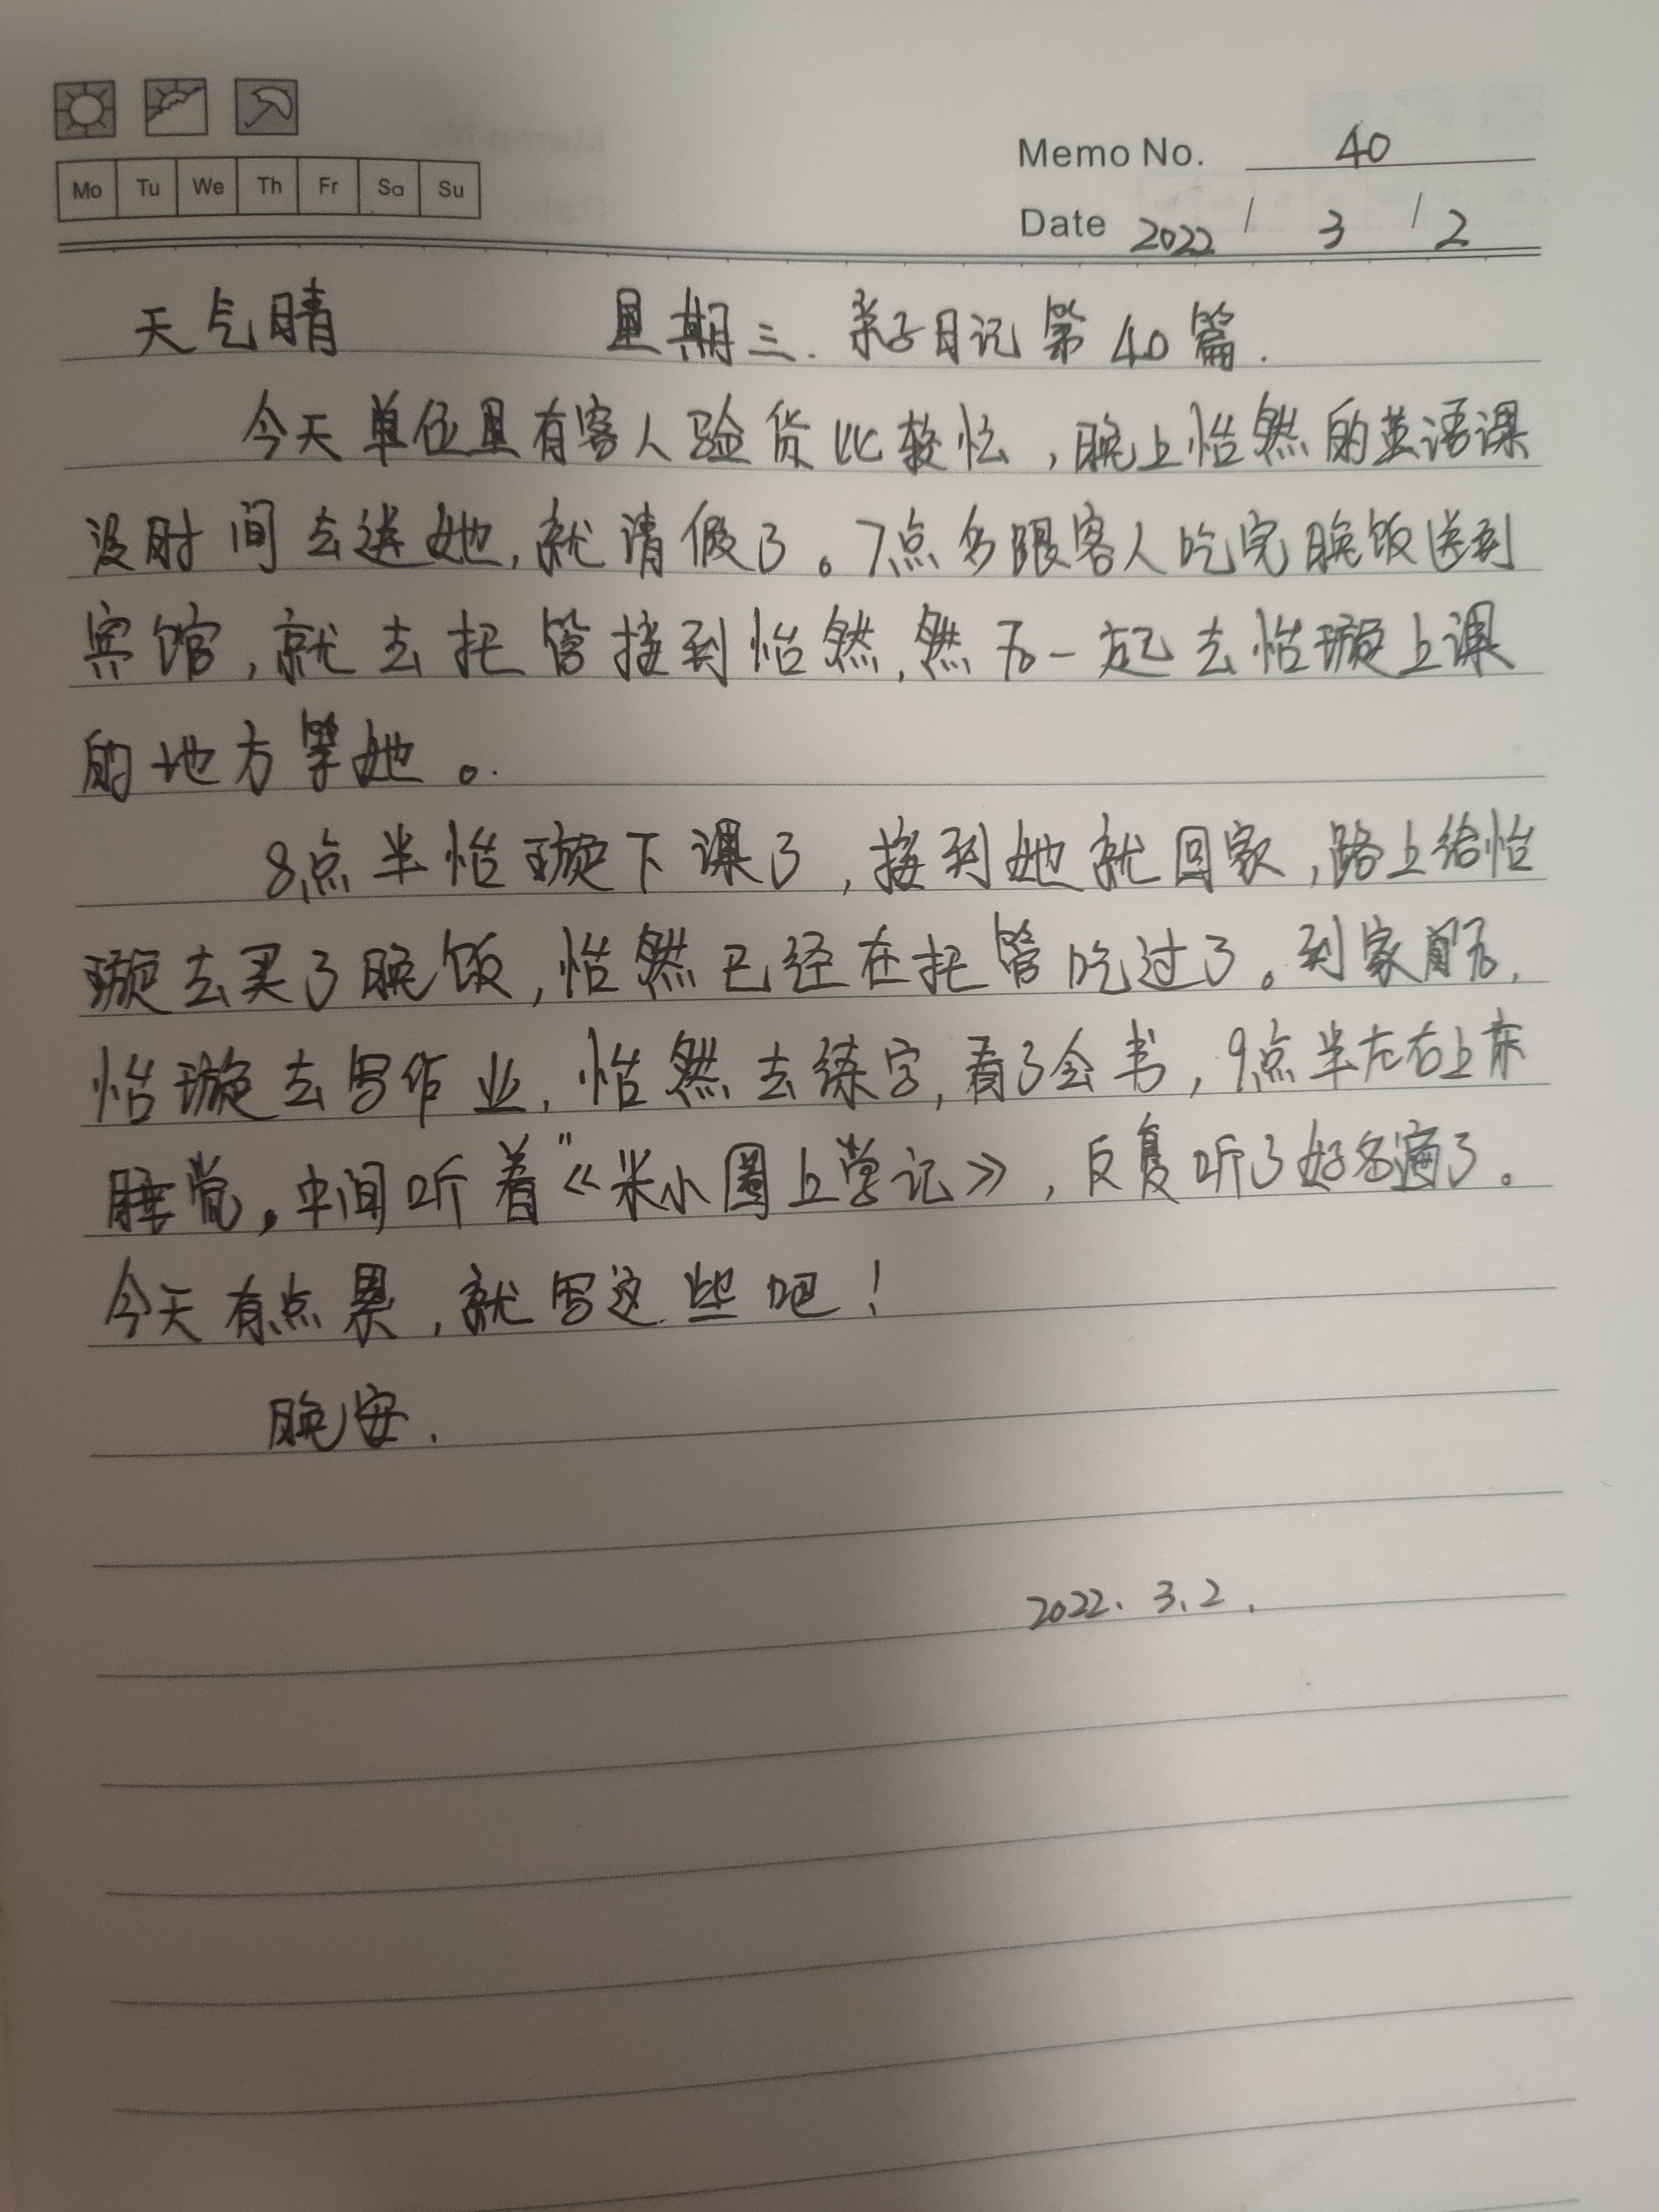 Memo No. 40
Mo Tu We Th Fr Sa Su
Date 2022 / 3 / 2
天气晴 星期三. 亲子日记第40篇.
今天单位里有客人验货比较忙,晚上怡然的英语课
没时间去送她,就请假了。7点多跟客人吃完晚饭送到
宾馆,就去托管接到怡然,然后一起去怡璇上课
的地方等她。
8点半怡璇下课了,接到她就回家,路上给怡
璇去买了晚饭,怡然已经在托管吃过了。到家后,
怡璇去写作业,怡然去练字,看了会书,9点半左右上床
睡觉,中间听着"《米小圈上学记》,反复听了好多遍了。
今天有点累,就写这些吧!
晚安.
2022.3.2.